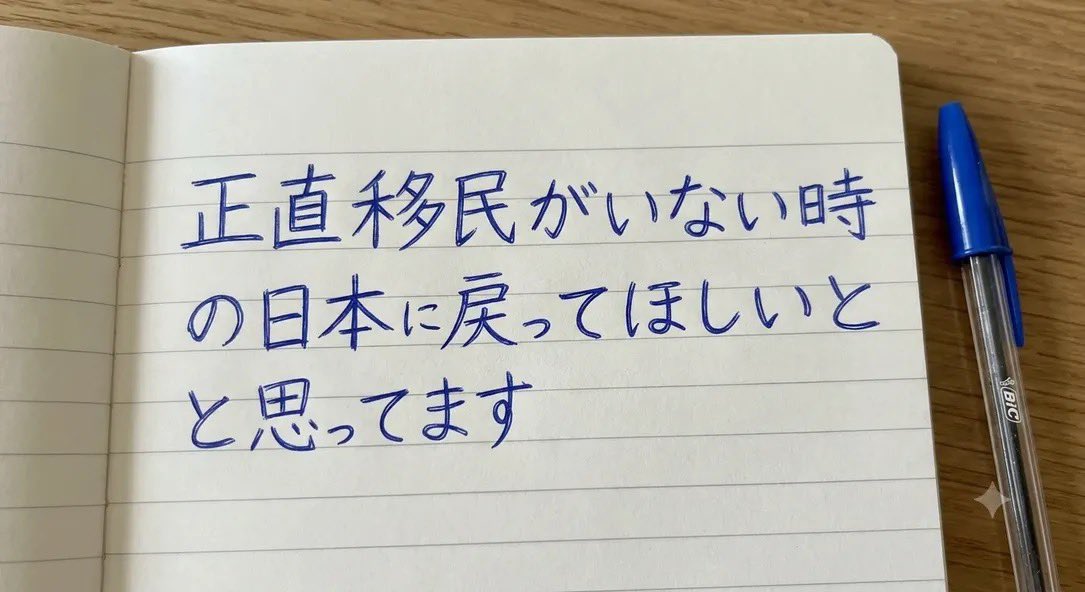 正直移民がいない時
の日本に戻ってほしいと
と思ってます
BIC